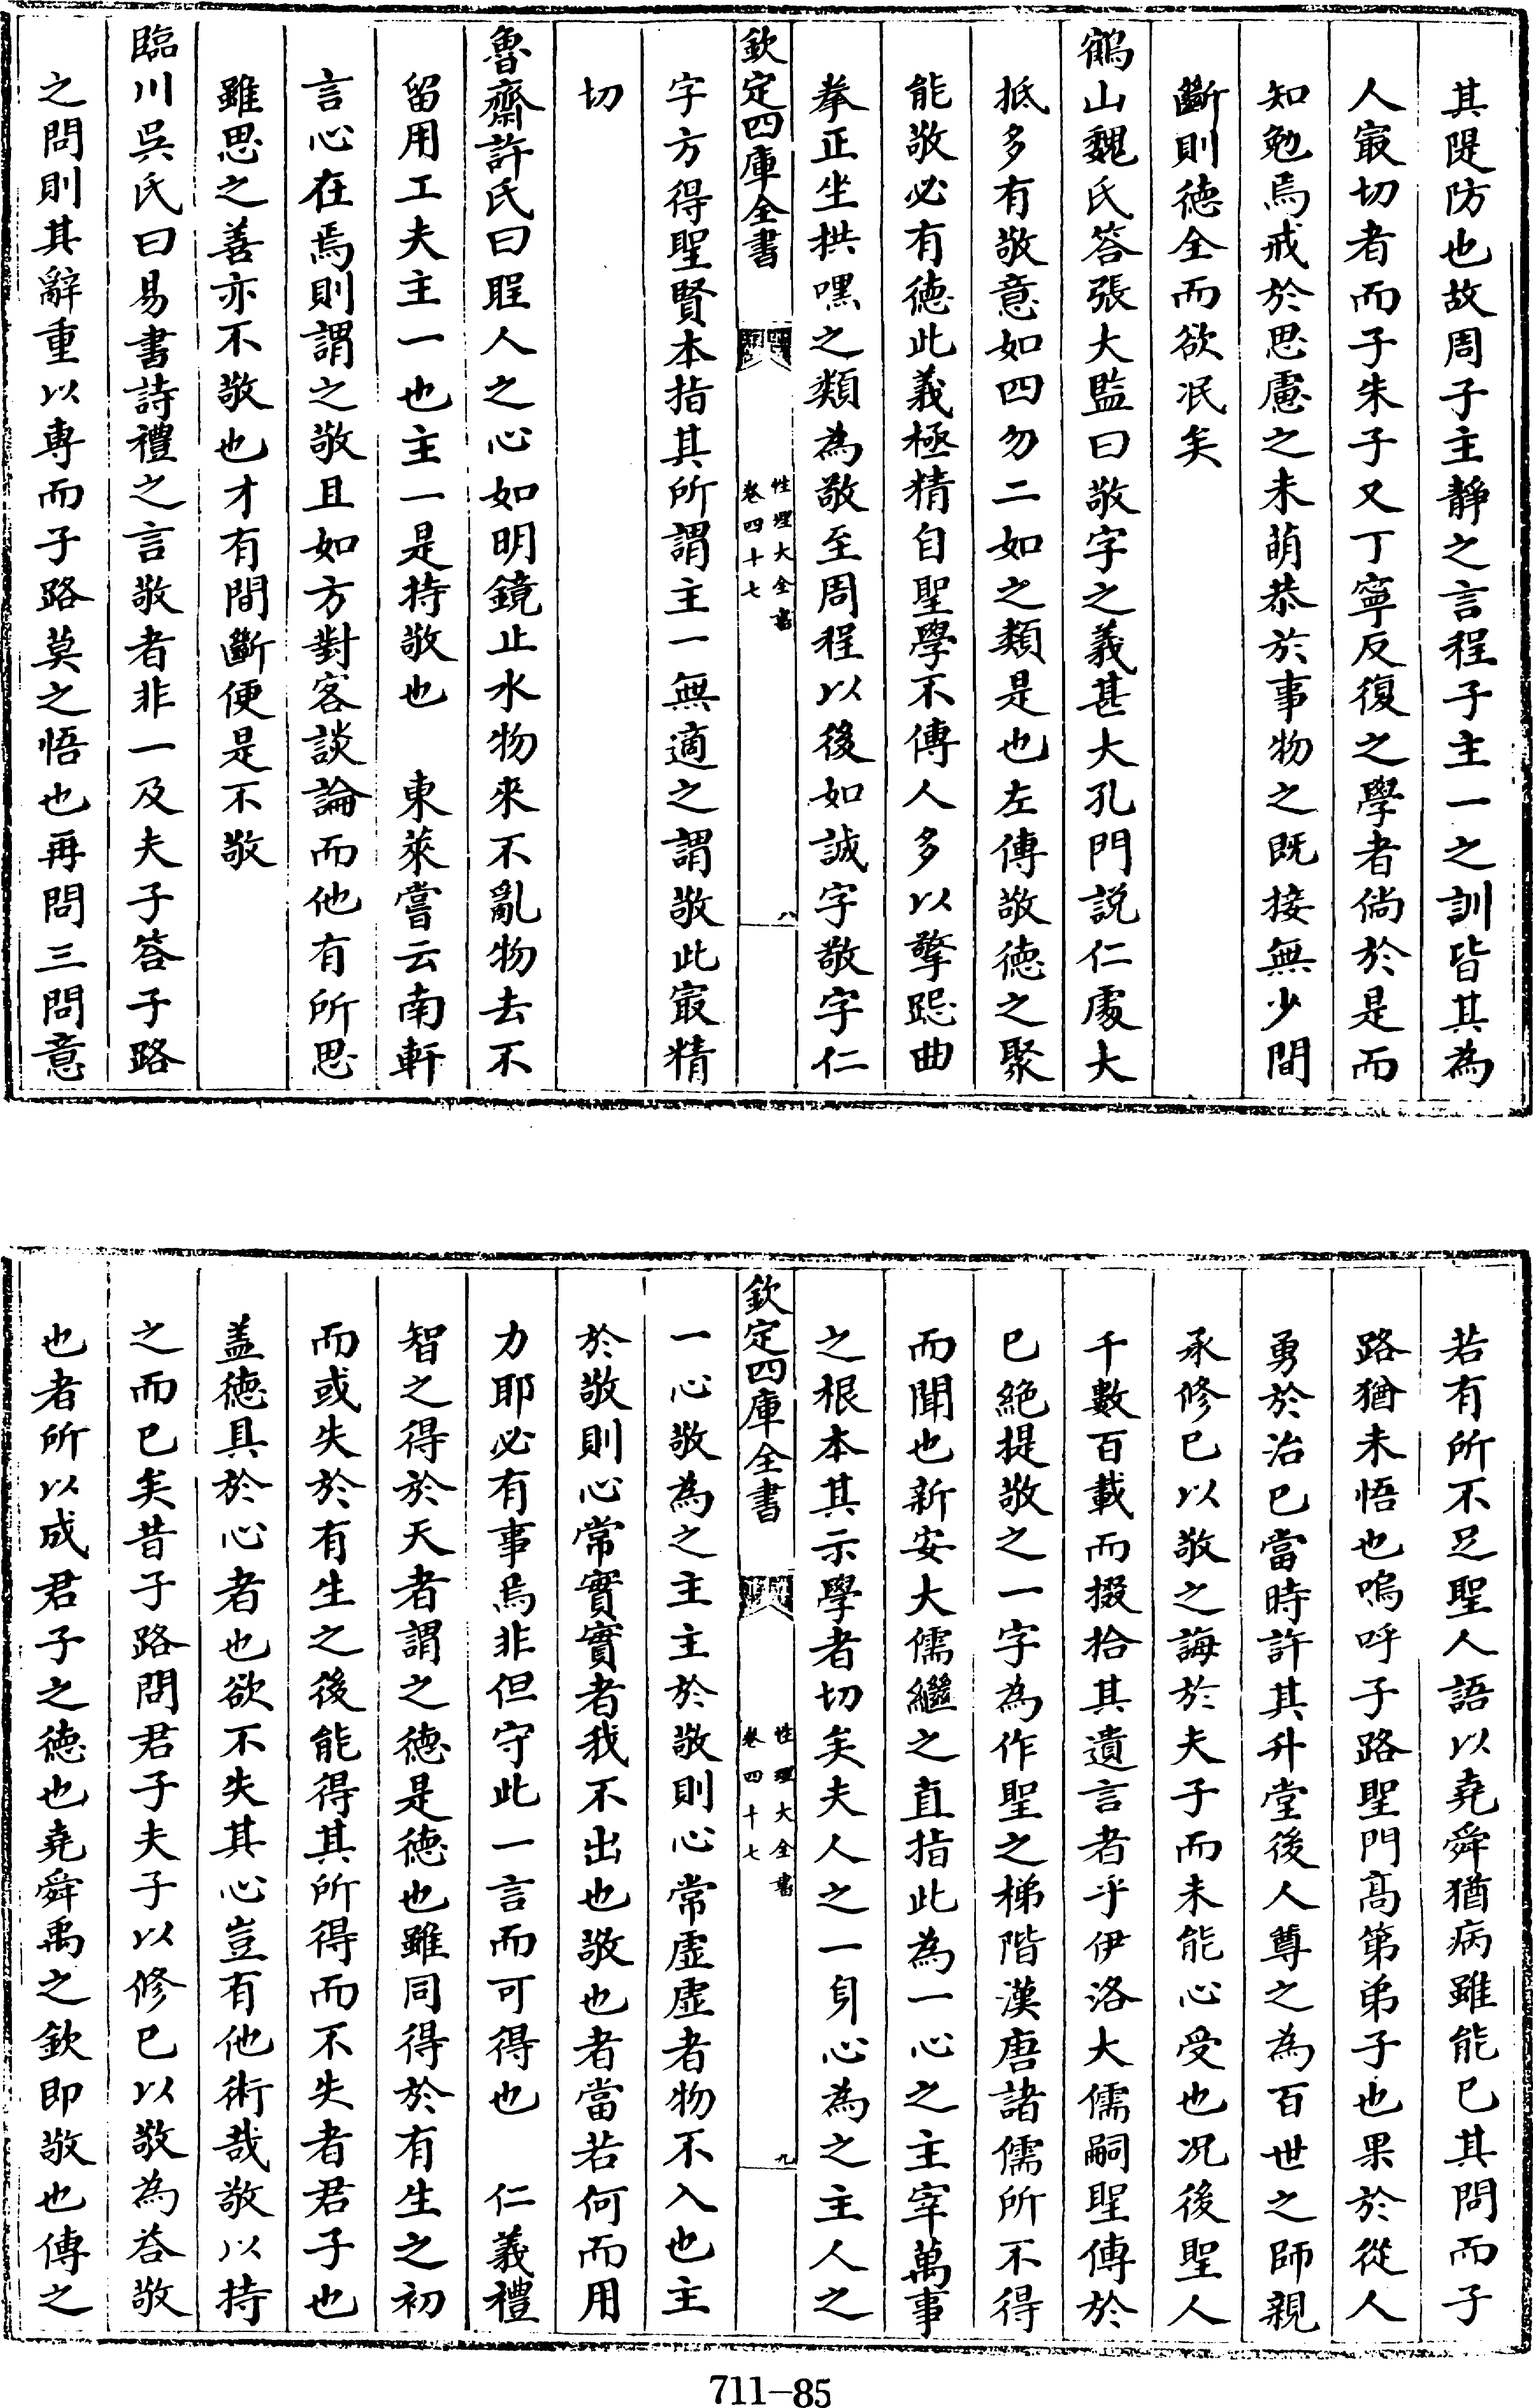 其隄防也故周子主靜之言程子主一之訓皆其為
人㝡切者而子朱子又丁寧反復之學者倘於是而
知勉焉戒於思慮之未萌恭於事物之既接無少間
斷則徳全而欲泯矣
鶴山魏氏答張大監曰敬字之義甚大孔門説仁處大
抵多有敬意如四勿二如之類是也左傳敬徳之聚
能敬必有徳此義極精自聖學不傳人多以擎跽曲
拳正坐拱嘿之類為敬至周程以後如誠字敬字仁
欽定四庫全書
性理大全書
卷四十七
八
字方得聖賢本指其所謂主一無適之謂敬此㝡精
切
魯齋許氏曰聖人之心如明鏡止水物來不亂物去不
留用工夫主一也主一是持敬也　東萊嘗云南軒
言心在焉則謂之敬且如方對客談論而他有所思
雖思之善亦不敬也才有間斷便是不敬
臨川吳氏曰易書詩禮之言敬者非一及夫子答子路
之問則其辭重以専而子路莫之悟也再問三問意
若有所不足聖人語以堯舜猶病雖能已其問而子
路猶未悟也嗚呼子路聖門髙第弟子也果於從人
勇於治已當時許其升堂後人尊之為百世之師親
承修已以敬之誨於夫子而未能心受也况後聖人
千數百載而掇拾其遺言者乎伊洛大儒嗣聖傳於
已絶提敬之一字為作聖之梯階漢唐諸儒所不得
而聞也新安大儒繼之直指此為一心之主宰萬事
之根本其示學者切矣夫人之一身心為之主人之
欽定四庫全書
性理大全書
卷四十七
九
一心敬為之主主於敬則心常虛虛者物不入也主
於敬則心常實實者我不出也敬也者當若何而用
力耶必有事焉非但守此一言而可得也　仁義禮
智之得於天者謂之徳是徳也雖同得於有生之初
而或失於有生之後能得其所得而不失者君子也
盖徳具於心者也欲不失其心豈有他術哉敬以持
之而已矣昔子路問君子夫子以修已以敬為答敬
也者所以成君子之徳也堯舜禹之欽即敬也傳之
711-85